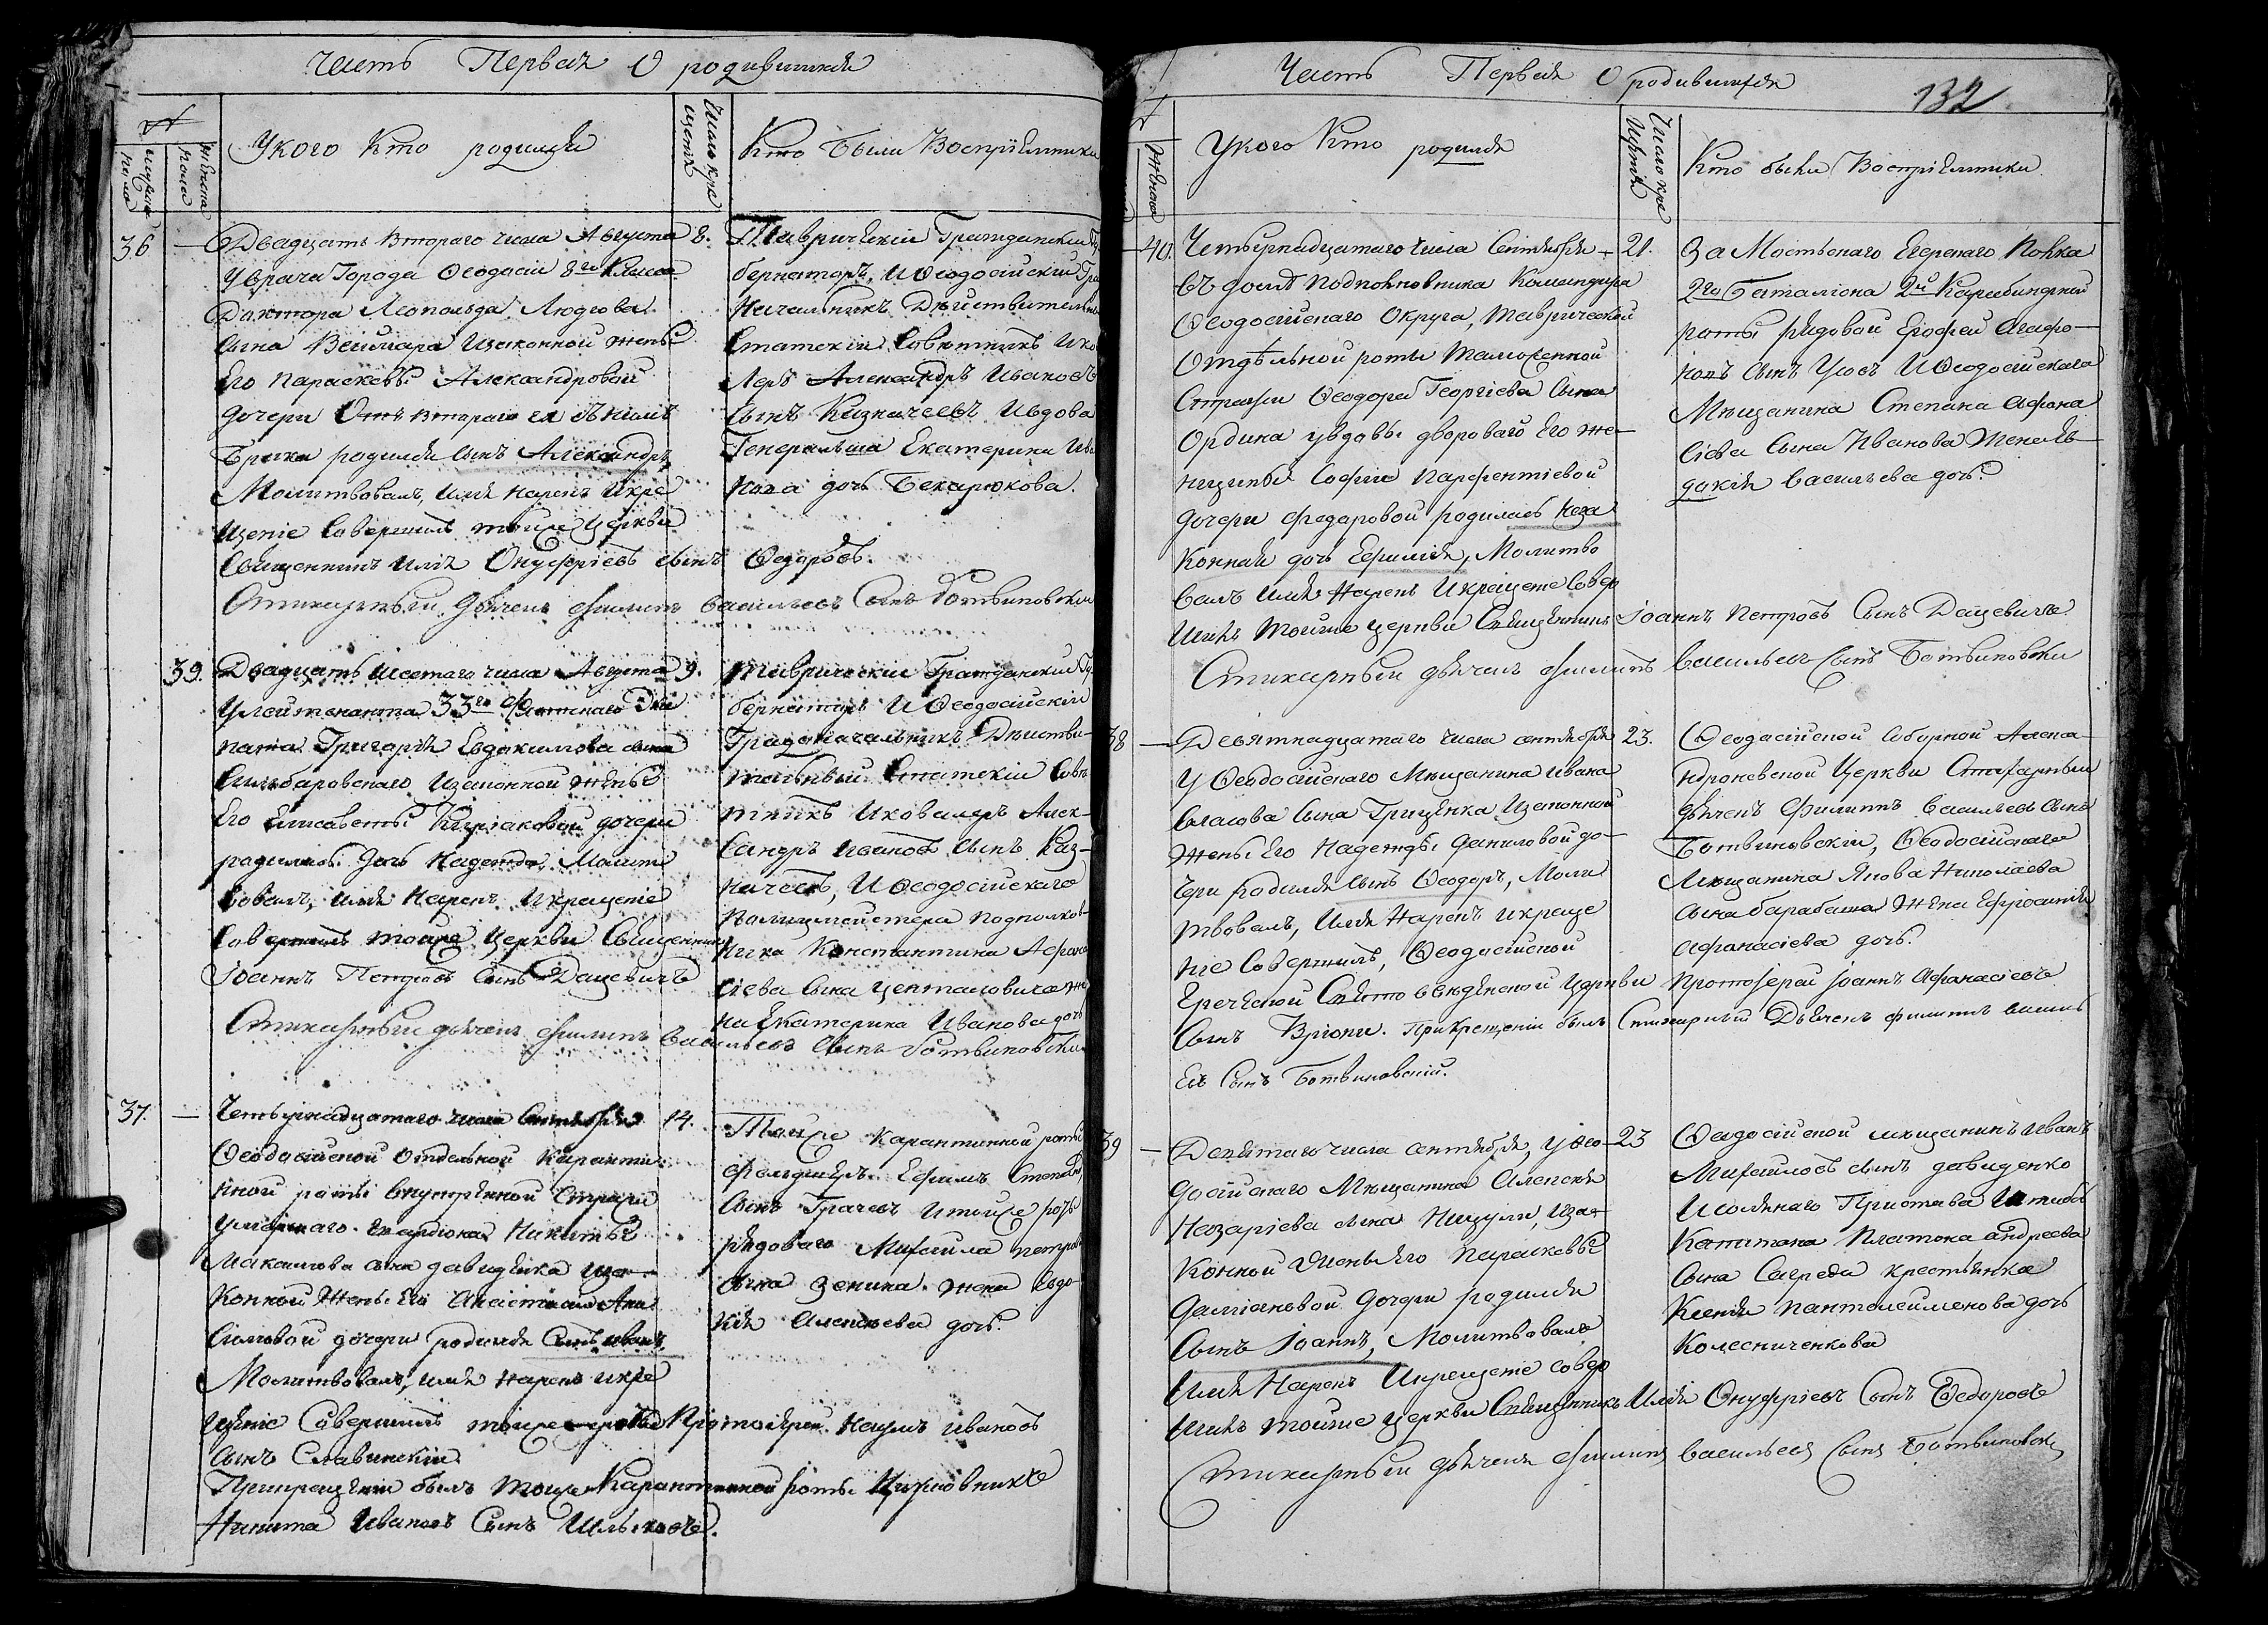 Часть Первая О родившихся
№
мужеска пола
женска пола
У кого кто родился
Число крещенія
Кто были Воспріемники
36 —
Двадцать втораго числа Августа
у врача Города Ѳеодосіи 8го Класса
Доктора Леополда Людгова
сына Веймара изаконной жены
Его Параскевы Александровой
дочери Отъ втораго ея съ нимъ
брака родился сынъ Александръ
Молитвовалъ, имя нарекъ икре
щеніе Совершилъ тойже церкви
Священникъ Илія Онуфріевъ сынъ Ѳедоровъ.
Стихарный Дьячекъ Филиппъ Васильевъ Сынъ Ботвиновскій
8.
Таврическій Гражданскій Гу
бернаторъ, и Ѳеодосійскій Гра
Начальникъ Действительны
Статскій Совѣтникъ и Ко
леръ Александръ Ивановъ
Сынъ Казначеевъ и вдова
Генеральша Екатерина Ива
нова дочь Бекарюкова.
39.
Двадцать шестаго числа Августа
у лейтенанта 33го Флотскаго Эки
пажа Григорія Евдокимова сына
изаконной жены
Его Елисаветы Киріаковой дочери
родилась дочь Надежда, Молит
вовалъ, имя нарекъ икрещеніе
Совершилъ тойже церкви Священникъ
Іоаннъ Петровъ сынъ Дацевичъ
Стихарный дьячекъ Филиппъ Васильевъ сынъ Ботвиновскій
9.
Таврическій Гражданскій Гу
бернаторъ и Ѳеодосійскій
Градоначальникъ Действи
тельный Статскій Совѣ
тникъ и Ковалеръ Алек-
сандръ Ивановъ сынъ Каз-
начеевъ, и Ѳеодосійскаго
Полицмейстера подполков
ника Константина Афана
сіева сына Центиловича же
на Екатерина Иванова дочь
37. —
Четырнадцатаго числа Сентября
Ѳеодосійской Отдельной Каранти
нной роты внутренней Стражи
умершаго Никиты
Максимова сына давиденка иза
конной жены Его Анастасіи Ани
симовой дочери родился сынъ Иванъ,
Молитвовалъ, имя нарекъ икре
щеніе Совершилъ тойже Протоіерей Наумъ Ивановъ
сынъ Славинскій
При крещеніи былъ тойже Карантинной роты
Никита Ивановъ Сынъ
14.
Тойже карантинной роты
фельдшеръ Ефимъ Степановъ
сынъ Грачевъ и тойже роты
рядоваго Михаила Петрова
сына Зенина жена Евдо-
кія Алексеева дочь.
Часть Первая О родившихся
132
Женска
У кого Кто родился
Число крещенія
Кто были Воспріемники
40.
Четырнадцатаго числа Сентября
въ домѣ Подполковника Командира
Ѳеодосійскаго Округа, Таврической
Отдѣльной роты Таможенной
Стражи Ѳеодора Георгіева Сына
Ордина у вдовы двороваго Его же-
нщины Софіи Парфентіевой
дочери Федаровой родилась неза
конная дочь Ефимія, Молитво
валъ имя нарекъ и крещеніе Совер
шилъ тойже церкви Священникъ Іоаннъ Петровъ Сынъ Дацевичъ
Стихарный дьячекъ Филиппъ Васильевъ Сынъ Ботвиновскій
21.
Замостьскаго Егерскаго Полка
2го Баталіона 2й Карабинерной
роты рядовой Ерофей Агафо-
новъ сынъ Усовъ и Ѳеодосійскаго
Мещанина Степана Афана
сіева Сына Иванова Жена Ев
докія Васильева дочь.
38 —
Девятнадцатаго числа сентября
у Ѳеодосійскаго Мещанина Ивана
Власова Сына Грищенка изаконной
жены Его Надежды Даниловой до-
чери родился сынъ Ѳеодоръ, Моли
твовалъ, имя Нарекъ икреще
ніе Совершилъ, Ѳеодосійской
Греческой Свято Введенской Церкви Протоіерей Іоаннъ Афанасіевъ
Сынъ Вріони. При крещеніи былъ Стихарный Дьячекъ Филиппъ Василь
евъ Сынъ Ботвиновскій.
23.
Ѳеодосійской Соборной Алекса
ндроневской Церкви Стихарный
дьячекъ Филиппъ Васильевъ Сынъ
Ботвиновскій, Ѳеодосійскаго
Мещанина Якова Николаева
сына барабаша Жена Ефросинія
Афанасіева дочь.
39 —
Девятаго числа сентября, у Ѳео-
досійскаго Мещанина Алексея
Назаріева сына Ницули, иза
конной жены Его Параскевы
Даміановой дочери родился
Сынъ Іоаннъ, Молитвовалъ
имя Нарекъ Икрещеніе совер
шилъ тойже церкви Священникъ Илія Онуфріевъ Сынъ Ѳедоровъ
Стихарный дьячекъ Филиппъ Васильевъ Сынъ Ботвиновскій
23
Ѳеодосійской мещанинъ Иванъ
Михайловъ сынъ давиденко
и солянаго Пристава Штабсъ
Капитана Платона андреева
Сына Сагреди крестьянка
Ксенія Пантелеимонова дочь
Колесниченкова